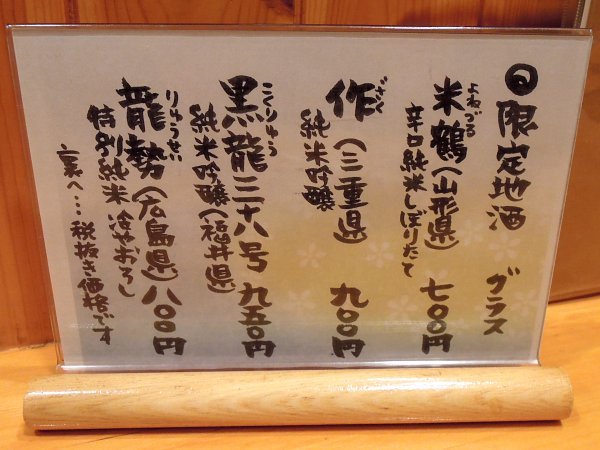 ◎限定地酒 グラス
よねづる
米鶴(山形県) 七〇〇円
辛口純米しぼりたて
ざく
作(三重県) 九〇〇円
純米吟醸
こくりゅう
黒龍三十八号 九五〇円
純米吟醸(福井県)
りゅうせい
龍勢(広島県) 八〇〇円
特別純米 冷やおろし
裏へ… 税抜き価格です